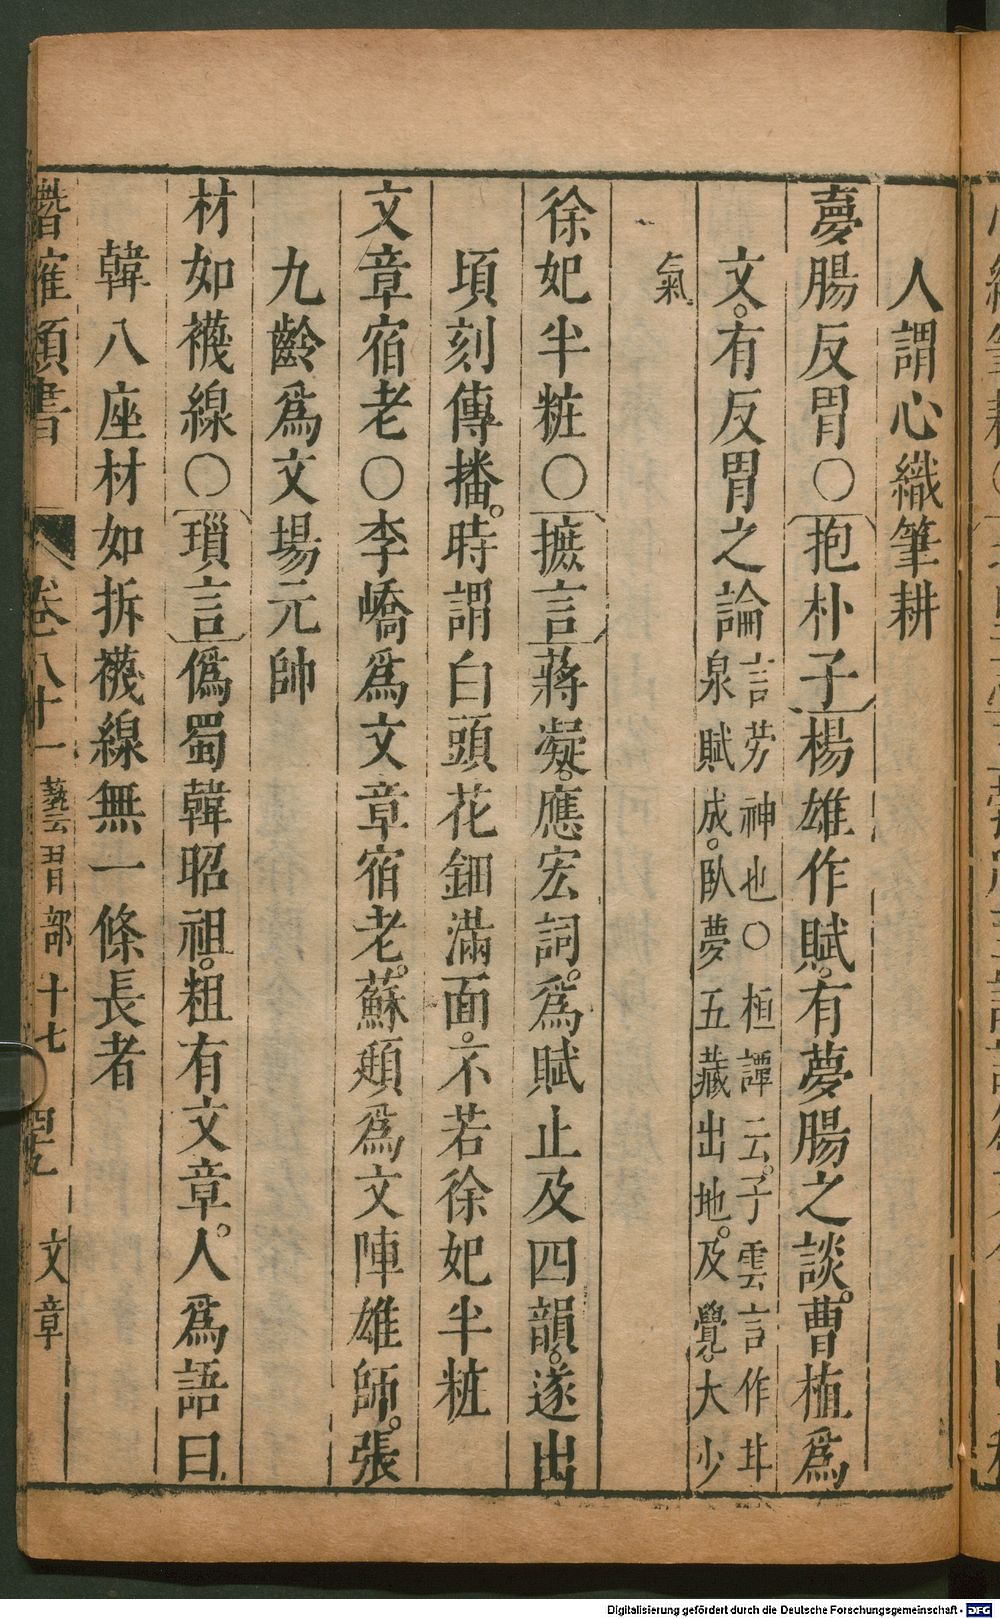 人謂心織筆耕
夣腸反胃○抱朴子楊雄作賦。有夢腸之談。曹植爲
文。有反胃之論言勞神也○桓譚云。子雲言作甘
泉賦成。臥夢五藏出地。及覺。大少
氣
徐妃半粧○摭言蔣凝。應宏詞。爲賦止及四韻。遂出
頃刻傳播。時謂白頭花鈿滿面。不若徐妃半粧
文章宿老○李嶠爲文章宿老。蘇頲爲文陣雄師。張
九齡爲文場元帥
材如襪線○瑣言僞蜀韓昭祖。粗有文章。人爲語曰
韓八座材如拆襪線無一條長者
潛確類書 卷八十一 藝習部十七 文章
Digitalisierung gefördert durch die Deutsche Forschungsgemeinschaft - DFG